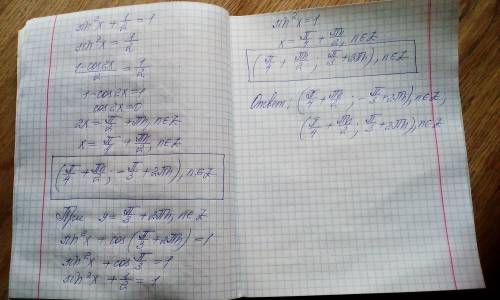 sin²x + 1/2 = 1
sin²x = 1/2
(1-cos2x)/2 = 1/2
1-cos2x = 1
cos2x = 0
2x = π/2 + πn, n∈Z
x = π/4 + πn/2, n∈Z
(π/4 + πn/2; -π/3 + 2πn), n∈Z
При y = π/3 + 2πn, n∈Z
sin²x + cos(π/3 + 2πn) = 1
sin²x + cos π/3 = 1
sin²x + 1/2 = 1
sin²x = 1
x = π/4 + πn/2, n∈Z
(π/4 + πn/2; π/3 + 2πn), n∈Z
Ответ: (π/4 + πn/2; -π/3 + 2πn), n∈Z,
(π/4 + πn/2; π/3 + 2πn), n∈Z